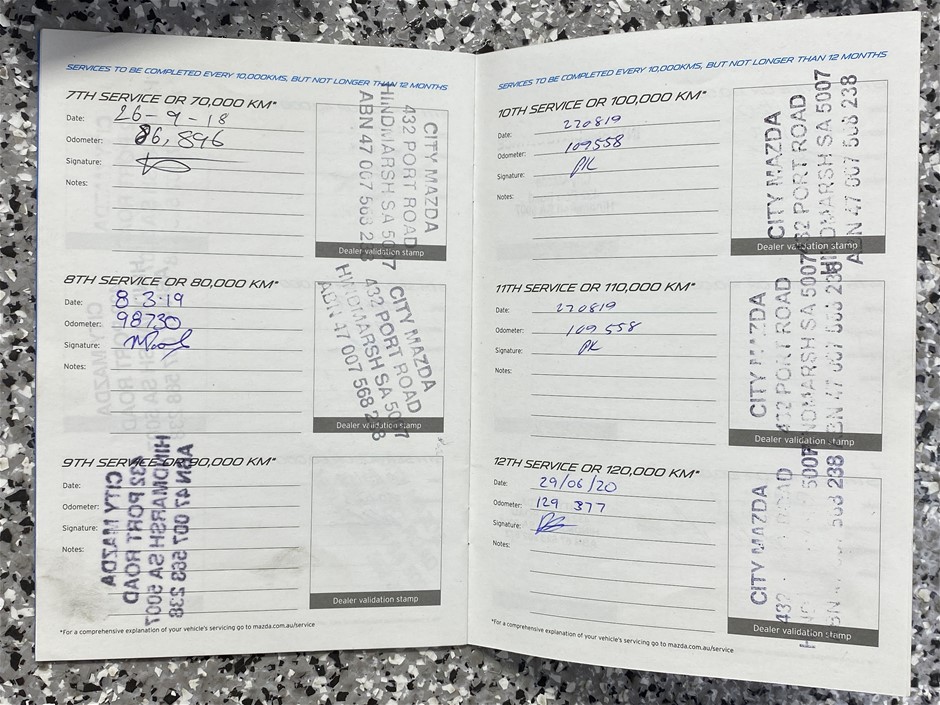 SERVICES TO BE COMPLETED EVERY 10,000KMS, BUT NOT LONGER THAN 12 MONTHS
7TH SERVICE OR 70,000 KM*
Date: 26-9-18
Odometer: 86,896
Signature:
Notes:
CITY MAZDA
432 PORT ROAD
HINDMARSH SA 5007
ABN 47 007 568 238
Dealer validation stamp
8TH SERVICE OR 80,000 KM*
Date: 8.3.19
Odometer: 98730
Signature:
Notes:
CITY MAZDA
432 PORT ROAD
HINDMARSH SA 5007
ABN 47 007 568 238
Dealer validation stamp
9TH SERVICE OR 90,000 KM*
Date:
Odometer:
Signature:
Notes:
CITY MAZDA
432 PORT ROAD
HINDMARSH SA 5007
ABN 47 007 568 238
Dealer validation stamp
*For a comprehensive explanation of your vehicle's servicing go to mazda.com.au/service
SERVICES TO BE COMPLETED EVERY 10,000KMS, BUT NOT LONGER THAN 12 MONTHS
10TH SERVICE OR 100,000 KM*
Date: 270819
Odometer: 109558
Signature: PK
Notes:
CITY MAZDA
432 PORT ROAD
HINDMARSH SA 5007
ABN 47 007 568 238
Dealer validation stamp
11TH SERVICE OR 110,000 KM*
Date: 270819
Odometer: 109 558
Signature: PK
Notes:
CITY MAZDA
432 PORT ROAD
HINDMARSH SA 5007
ABN 47 007 568 238
Dealer validation stamp
12TH SERVICE OR 120,000 KM*
Date: 29/06/20
Odometer: 129 377
Signature:
Notes:
CITY MAZDA
432 ROAD
5007
238
Dealer validation stamp
*For a comprehensive explanation of your vehicle's servicing go to mazda.com.au/service